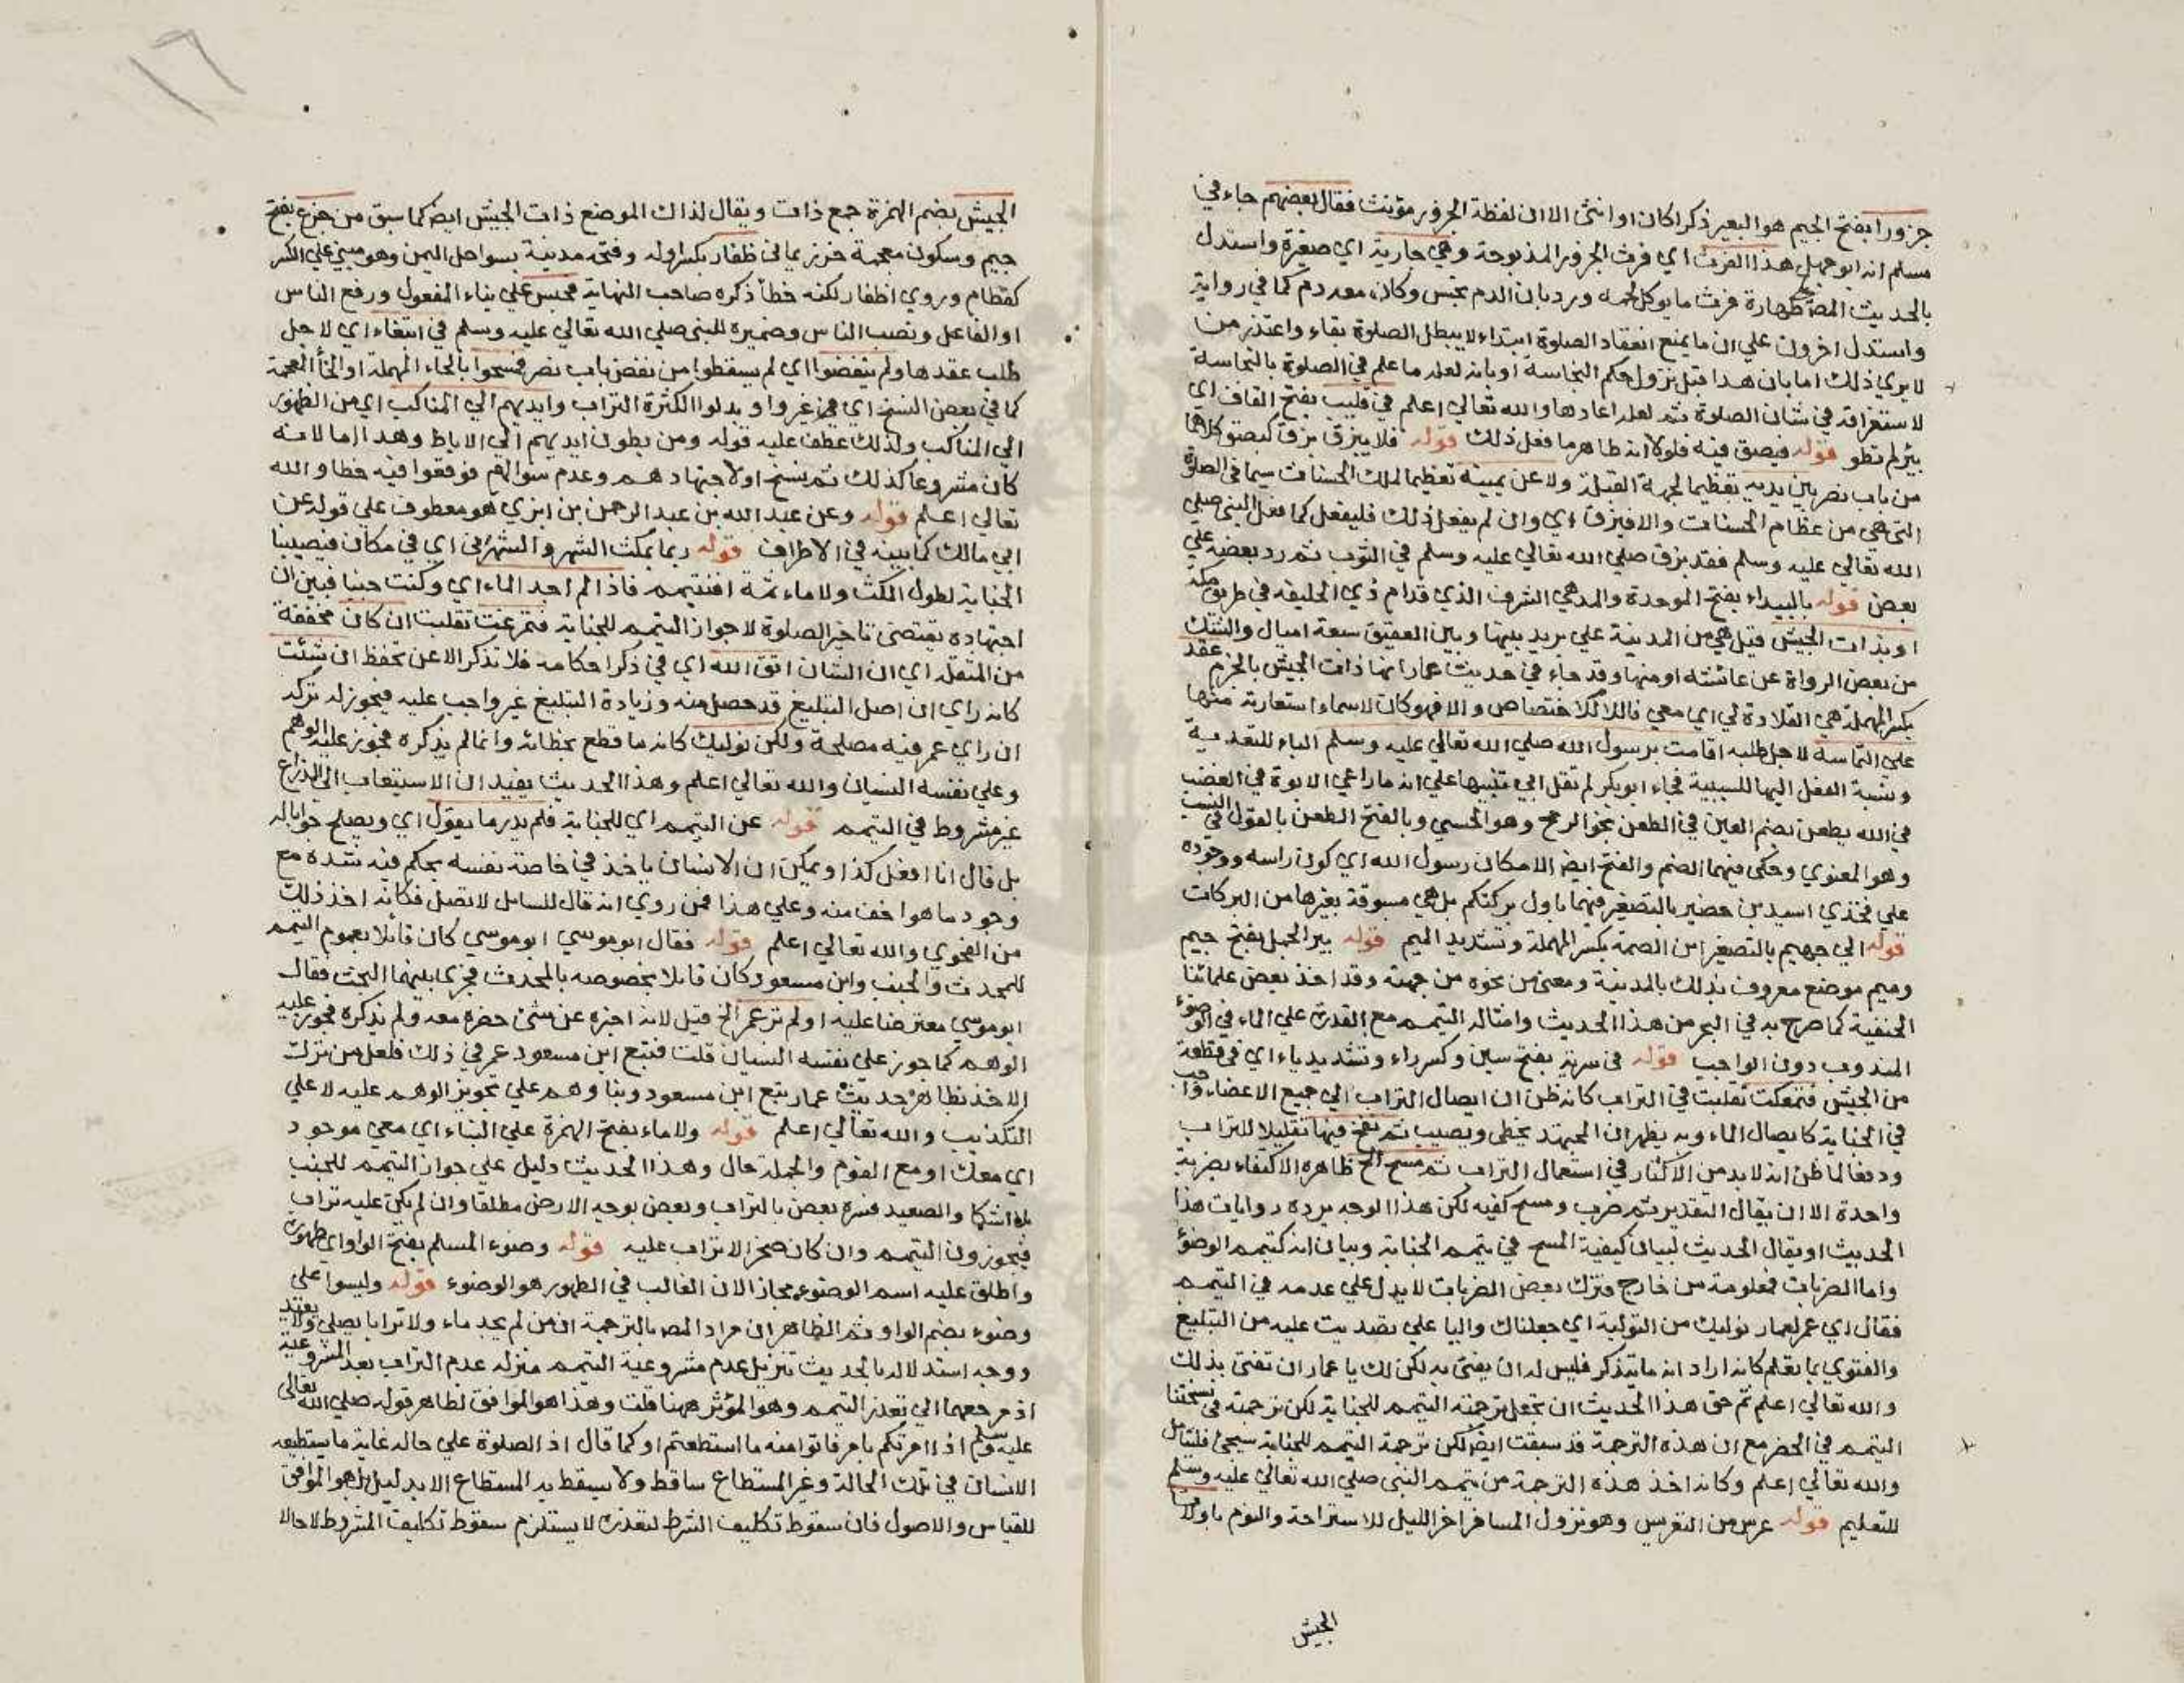 ١٦
جزورا بفتح الجيم هو البعير ذكرا كان او انثى الا ان لفظة الجزور مؤنث فقال بعضهم جاء في
مسلم انه ابو جهل هذا الفرث اي فرث الجزور المذبوحة وهي جارية اي صغيرة واستدل
بالحديث المص طهارة فرث ما يوكل لحمه ورد بان الدم نجس وكان معه دم كما في رواية
واستدل اخرون علي ان ما يمنع انعقاد الصلوة ابتداء لا يبطل الصلوة بقاء واعتذر من
لا يري ذلك اما بان هذا قبل نزول حكم النجاسة او بانه لعله ما علم في الصلوة بالنجاسة
لاستغراقه في شان الصلوة ثم لعله اعادها والله تعالي اعلم في قليب بفتح القاف اي
بئر لم تطو قوله فيصق فيه فلو كان طاهر ما فعل ذلك قوله فلا يبزق بزق كبصق كلاهما
من باب نصر بين يديه تعظيما لجهة القبلة ولا عن يمينه تعظيما لملك الحسنات سيما في الصلوة
التي هي من عظام الحسنات والا فيبزق اي وان لم يفعل ذلك فليفعل كما فعل النبي صلي
الله تعالي عليه وسلم فقد بزق صلي الله تعالي عليه وسلم في الثوب ثم رد بعضه علي
بعض قوله بالبيداء بفتح الموحدة والمد هي الشرف الذي قدام ذي الحليفة في طريق مكة
او بذات الجيش قيل هي من المدينة علي بريد بينها وبين العقيق سبعة اميال والشك
من بعض الرواة عن عائشة او منها وقد جاء في حديث عمار انها ذات الجيش بالجزم عقد
بكسر المهملة هي القلادة لي اي معي فاللام للاختصاص والا فهو كان لاسماء استعارته منها
علي التماسه لاجل طلبه اقامت برسول الله صلي الله تعالي عليه وسلم الباء للتعدية
ونسبة الفعل اليها للسببية فجاء ابو بكر لم تقل ابي تنبيها علي انه ما راعي الابوة في الغضب
في الله يطعن بضم العين في الطعن نحو الرمح وهو الحسي وبالفتح الطعن بالقول في النسب
وهو المعنوي وحكي فيهما الضم والفتح ايض الا مكان رسول الله اي كون راسه ووجوده
علي فخذي اسيد بن حضير بالتصغير فيهما باول بركتكم بل هي مسبوقة بغيرها من البركات
قوله الي جهيم بالتصغير ابن الصمة بكسر المهملة وتشديد الميم قوله بير الجمل بفتح جيم
وميم موضع معروف بذلك بالمدينة ومعني من نحوه من جهته وقد اخذ بعض علمائنا
الحنفية كما صرح به في البحر من هذا الحديث وامثاله التيمم مع القدرة علي الماء في الوضوء
المندوب دون الواجب قوله في سرية بفتح سين وكسر راء وتشديد ياء اي في قطعة
من الجيش فتمعكت تقلبت في التراب كانه ظن ان ايصال التراب الي جميع الاعضاء واجب
في الجنابة كايصال الماء وبه يظهر ان المجتهد يخطي ويصيب ثم نفخ فيها تقليلا للتراب
ودفعا لما ظن انه لا بد من الاكثار في استعمال التراب ثم مسح الخ ظاهره الاكتفاء بضربة
واحدة الا ان يقال التقدير ثم ضرب ومسح كفيه لكن هذا الوجه يرده روايات هذا
الحديث او يقال الحديث لبيان كيفية المسح في تيمم الجنابة وبيان انه كتيمم الوضوء
واما الضربات فمعلومة من خارج فترك بعض الضربات لا يدل علي عدمه في التيمم
فقال اي عمر لعمار نوليك من التولية اي جعلناك واليا علي تصديت عليه من التبليغ
والفتوي بما تعلم كانه اراد انه ما يتذكر فليس له ان يفتي به لكن لك يا عمار ان تفتي بذلك
والله تعالي اعلم ثم حق هذا الحديث ان تجعل ترجمته التيمم للجنابة لكن ترجمته في نسختنا
التيمم في الحضر مع ان هذه الترجمة قد سبقت ايض لكن ترجمة التيمم للجنابة سيجئ فليتامل
والله تعالي اعلم وكانه اخذ هذه الترجمة من تيمم النبي صلي الله تعالي عليه وسلم
للتعليم قوله عرس من التعريس وهو نزول المسافر اخر الليل للاستراحة والنوم باولات
الجيش
الجيش بضم الهمزة جمع ذات ويقال لذاك الموضع ذات الجيش ايض كما سبق من جزع بفتح
جيم وسكون معجمة خرز يماني ظفار بكسر اوله وفتحه مدينة بسواحل اليمن وهو مبني علي الكسر
كقطام وروي اظفار لكنه خطأ ذكره صاحب النهاية فحبس علي بناء المفعول ورفع الناس
او الفاعل ونصب الناس وضميره للنبي صلي الله تعالي عليه وسلم في ابتغاء اي لاجل
طلب عقدها ولم ينفضوا اي لم يسقطوا من نفض باب نصر فمسحوا بالحاء المهملة او الخاء المعجمة
كما في بعض النسخ اي غيروا وبدلوا الكثرة التراب وايديهم الي المناكب اي من الظهور
الي المناكب ولذلك عطف عليه قوله ومن بطون ايديهم الي الاباط وهذا اما لانه
كان مشروعا كذلك ثم نسخ او لاجتهادهم وعدم سؤالهم فوقعوا فيه خطا والله
تعالي اعلم قوله وعن عبد الله بن عبد الرحمن بن ابزي هو معطوف علي قوله عن
ابي مالك كما بينه في الاطراف قوله ربما نمكث الشهر والشهرين اي في مكان فتصيبنا
الجنابة لطول المكث ولا ماء ثمة افنتيمم فاذا لم اجد الماء اي وكنت جنبا فبين ان
اجتهاده يقتضي تاخير الصلوة لا جواز التيمم للجنابة فتمرغت تقلبت ان كان مخففة
من المثقلة اي ان الشان اتق الله اي في ذكر احكامه فلا تذكر الا عن تحفظ ان شئت
كانه راي ان اصل التبليغ قد حصل منه وزيادة التبليغ غير واجب عليه فيجوز له تركه
ان راي عمر فيه مصلحة ولكن نوليك كانه ما قطع بخطائه وانما لم يذكره فجوز عليه الوهم
وعلي نفسه النسيان والله تعالي اعلم وهذا الحديث يفيد ان الاستيعاب الي الذراع
غير مشروط في التيمم قوله عن التيمم اي للجنابة فلم يدر ما يقول اي ويصلح جوابا له
بل قال انا افعل كذا ويمكن ان الانسان ياخذ في خاصة نفسه بحكم فيه شدة مع
وجود ما هو اخف منه وعلي هذا فمن روي انه قال للسايل لا تصل فكانه اخذ ذلك
من الفحوي والله تعالي اعلم قوله فقال ابو موسي ابو موسي كان قائلا بعموم التيمم
للمحدث والجنب وابن مسعود كان قايلا بخصوصه بالمحدث فجري بينهما البحث فقال
ابو موسي معترضا عليه اولم تر عمر الخ قيل لانه اخبره عن شئ حضره معه ولم يذكره فجوز عليه
الوهم كما جوز علي نفسه النسيان قلت فتبع ابن مسعود عمر في ذلك فلعل من ترك
الاخذ بظاهر حديث عمار تبع ابن مسعود وبناوهم علي تجويز الوهم عليه لا علي
التكذيب والله تعالي اعلم قوله ولا ماء بفتح الهمزة علي البناء اي معي موجود
اي معك او مع القوم والجملة حال وهذا الحديث دليل علي جواز التيمم للجنب
والصعيد فسره بعض بالتراب وبعض بوجه الارض مطلقا وان لم يكن عليه تراب
فيجوزون التيمم وان كان صخرا لا تراب عليه قوله وضوء المسلم بفتح الواو اي طهوره
واطلق عليه اسم الوضوء مجازا لان الغالب في الطهور هو الوضوء قوله وليسوا علي
وضوء بضم الواو ثم الظاهر ان مراد المص بالترجمة ان من لم يجد ماء ولا ترابا يصلي ولا يعيد
ووجه استدلاله بالحديث تنزيل عدم مشروعية التيمم منزلة عدم التراب بعد المشروعية
اذ مرجعهما الي تعذر التيمم وهو المؤثر ههنا قلت وهذا هو الموافق لظاهر قوله صلي الله تعالى
عليه وسلم اذا امرتكم بامر فاتوا منه ما استطعتم او كما قال اذ الصلوة علي حاله غاية ما يستطيعه
الانسان في تلك الحالة وغير المستطاع ساقط ولا يسقط به المستطاع الا بدليل بل هو الموافق
للقياس والاصول فان سقوط تكليف الشرط لتعذره لا يستلزم سقوط تكليف المشروط لا حالا